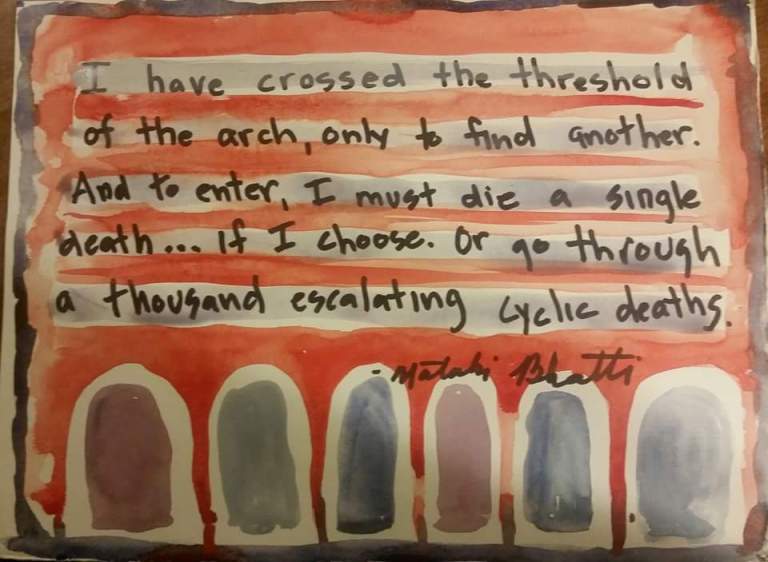 I have crossed the threshold
of the arch, only to find another.
And to enter, I must die a single
death... If I choose. Or go through
a thousand escalating cyclic deaths.
- Matahi Bhatti